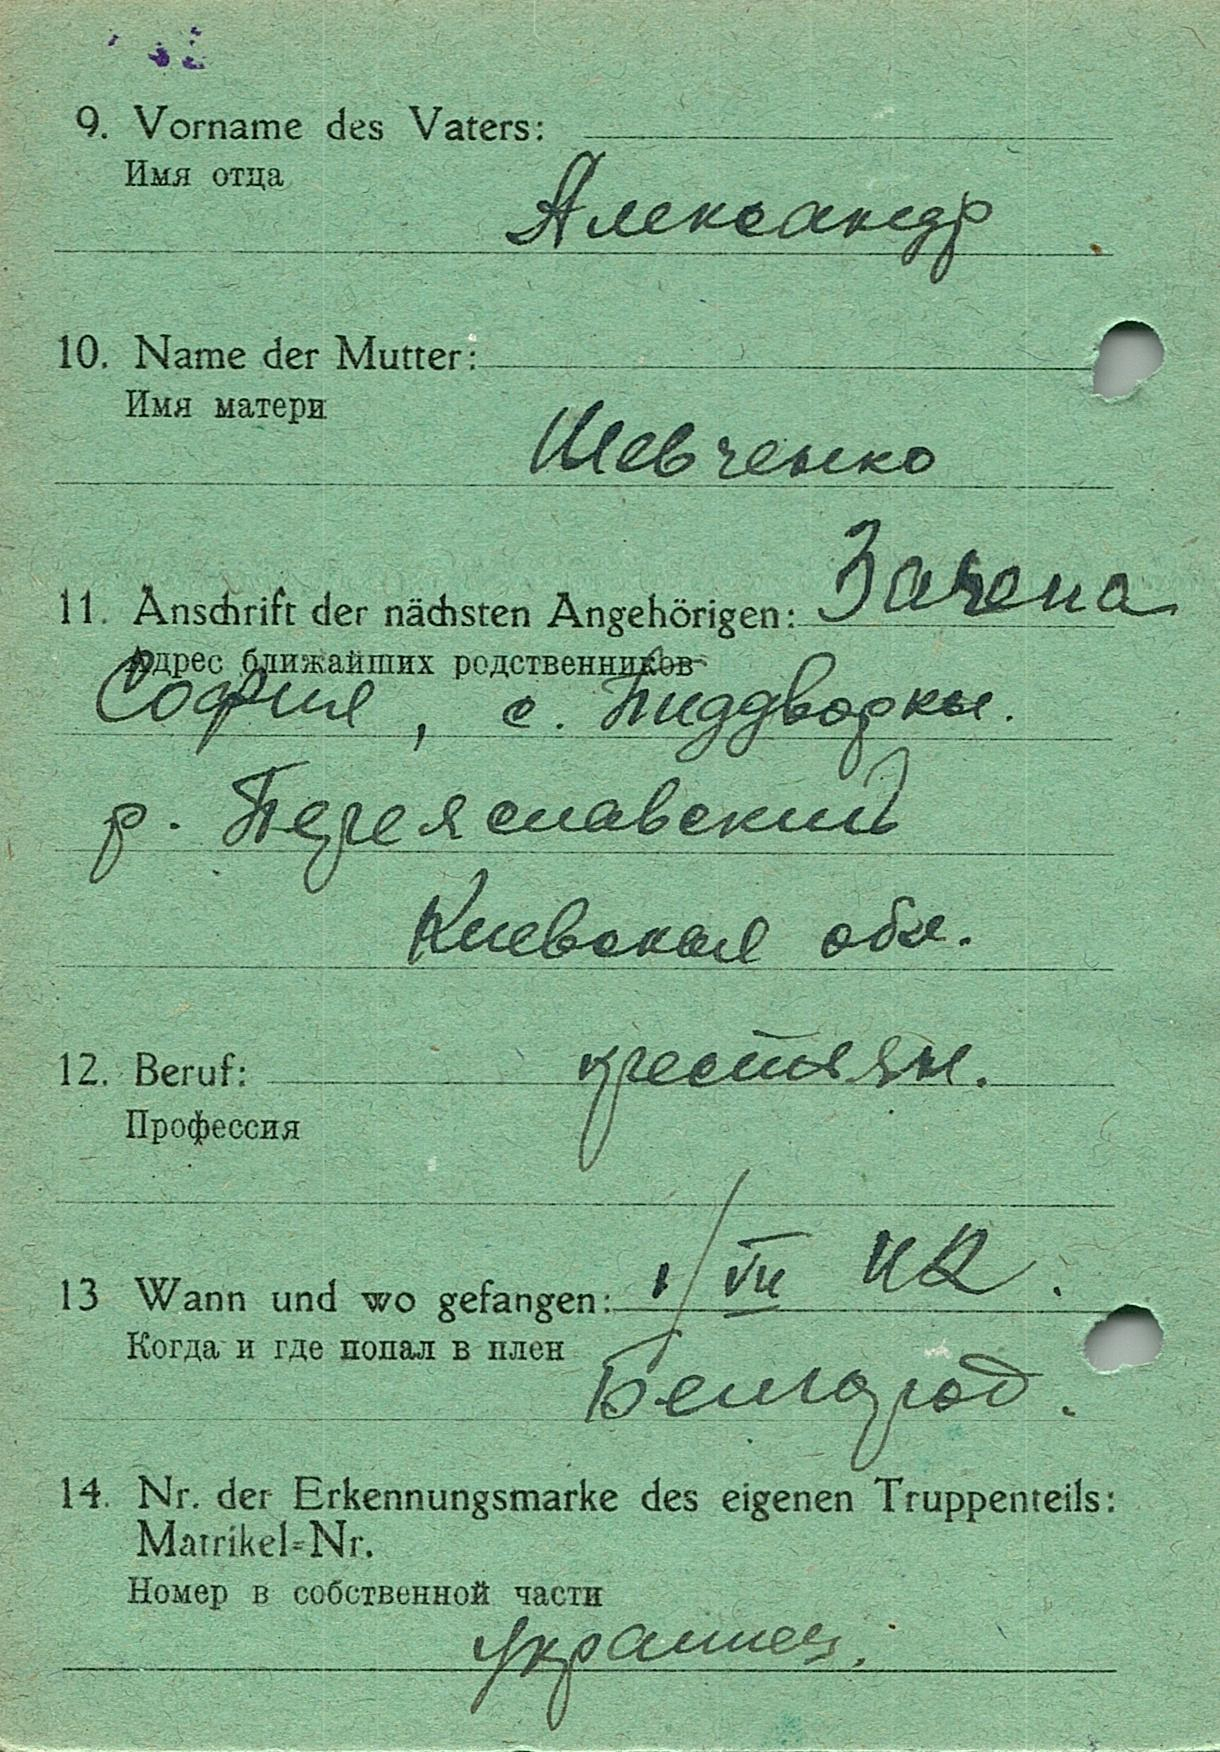 9. Vorname des Vaters:
Имя отца
Александр
10. Name der Mutter:
Имя матери
Шевченко
11. Anschrift der nächsten Angehörigen:
Адрес ближайших родственников
София, с. Пиддворки.
р. Переяславский
Киевская обл.
12. Beruf: крестьян.
Профессия
13 Wann und wo gefangen: 1/VII 42.
Когда и где попал в плен
Белгород.
14. Nr. der Erkennungsmarke des eigenen Truppenteils:
Matrikel=Nr.
Номер в собственной части
украинец.